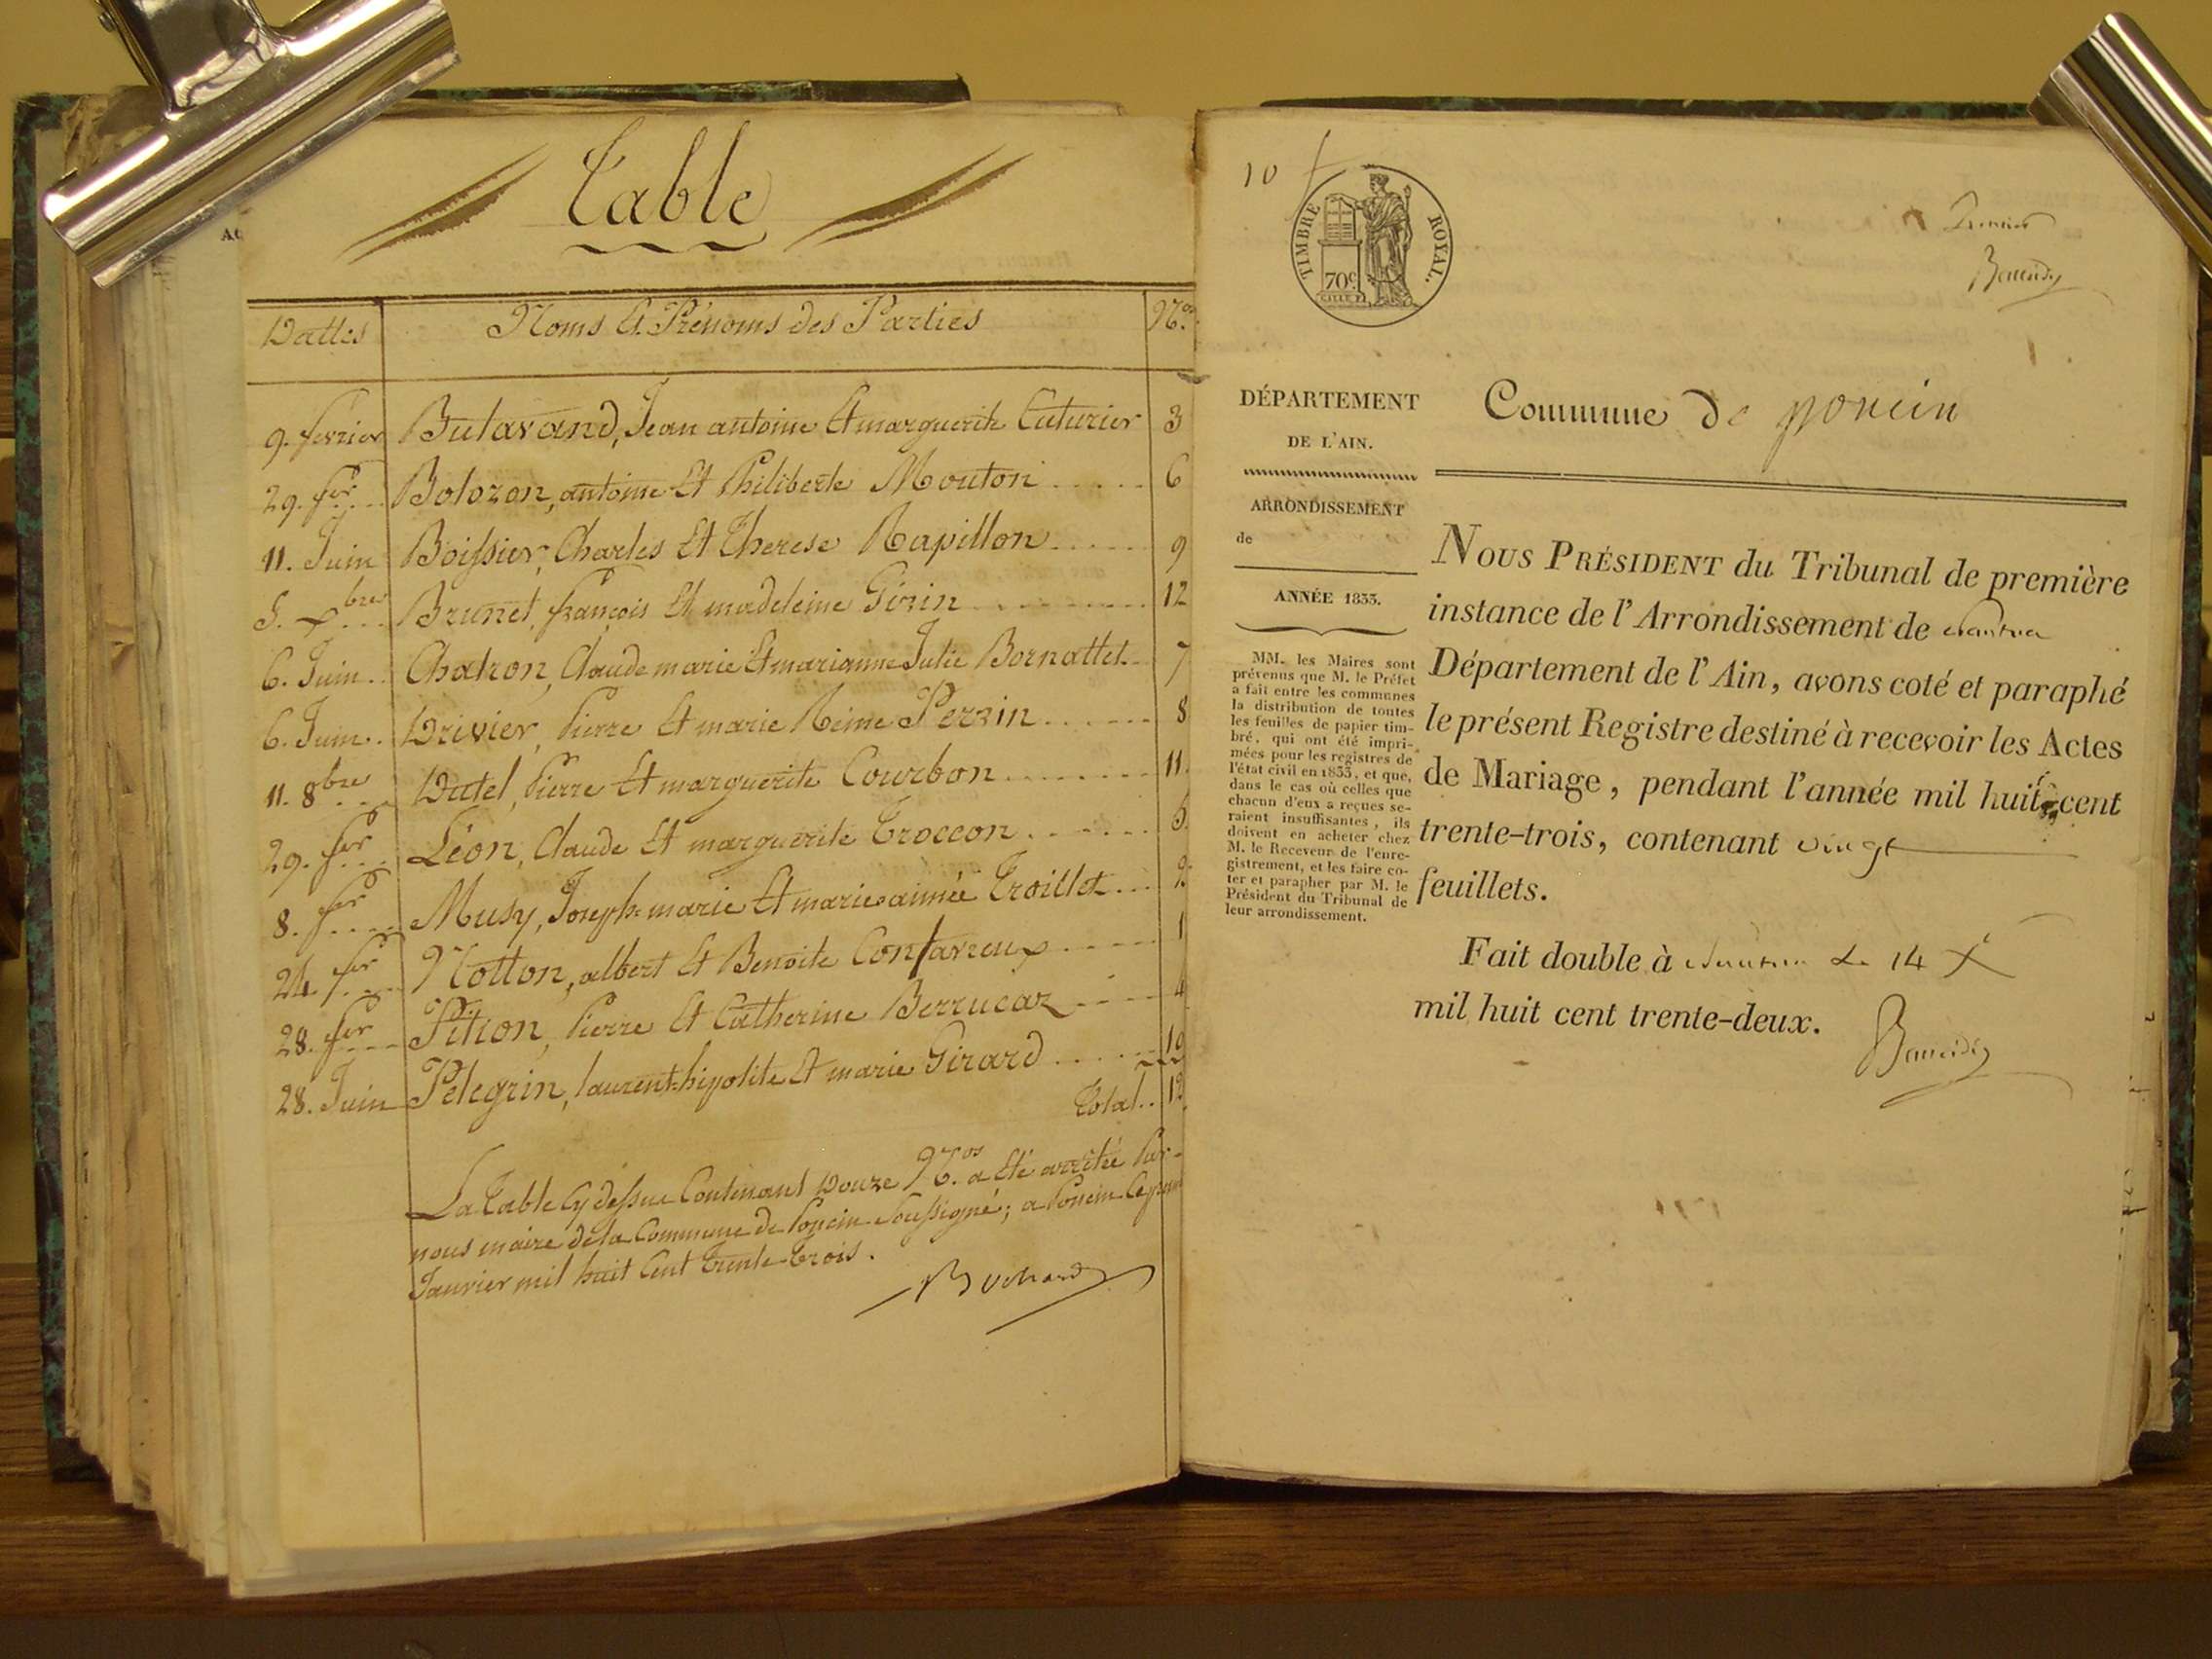 Table
Dattes Noms Et Prénoms des Parties N.os
9. fevrier Butavand, Jean antoine Et marguerite Cuturier 3
29. fer Bolozon, antoine Et Philiberte Mouton 6
11. Juin Boissier, Charles Et Therese Rapillon 9
5. xbre Brunet, françois Et madeleine Girin 12
6. Juin Chatron, Claude marie Et marianne Julie Bornattet 7
6. Juin Drivier, Pierre Et marie Reine Perrin 8
11. 8bre Dutel, Pierre Et marguerite Courbon 11
29. fer Léon, Claude Et marguerite Troccon 5
8. fer Musy, Joseph-marie Et marie aimée Troillet 2
24. fer Notton, albert Et Benoite Contavreux 1
28. fer Pition, Pierre Et Catherine Berrucaz 4
28. Juin Pelegrin, laurent-hipolite Et marie Girard 10
Total.. 12
La Table Cy dessue Contenant Douze N.os a Eté arrétée Par
nous maire de la Commune de Poncin Soussigné; a Poncin Ce
Janvier mil huit Cent Trente-Trois.
Bochard
10
TIMBRE ROYAL.
70c
Premier
DÉPARTEMENT
DE L'AIN.
Commune de poncin
ARRONDISSEMENT
de
ANNÉE 1833.
MM. les Maires sont
prévenus que M. le Préfet
a fait entre les communes
la distribution de toutes
les feuilles de papier tim-
bré, qui ont été impri-
mées pour les registres de
l'état civil en 1833, et que,
dans le cas où celles que
chacun d'eux a reçues se-
raient insuffisantes, ils
doivent en acheter chez
M. le Receveur de l'enre-
gistrement, et les faire co-
ter et parapher par M. le
Président du Tribunal de
leur arrondissement.
NOUS PRÉSIDENT du Tribunal de première
instance de l'Arrondissement de nantua
Département de l'Ain, avons coté et paraphé
le présent Registre destiné à recevoir les Actes
de Mariage, pendant l'année mil huit cent
trente-trois, contenant vingt
feuillets.
Fait double à nantua Le 14 Xe
mil huit cent trente-deux.